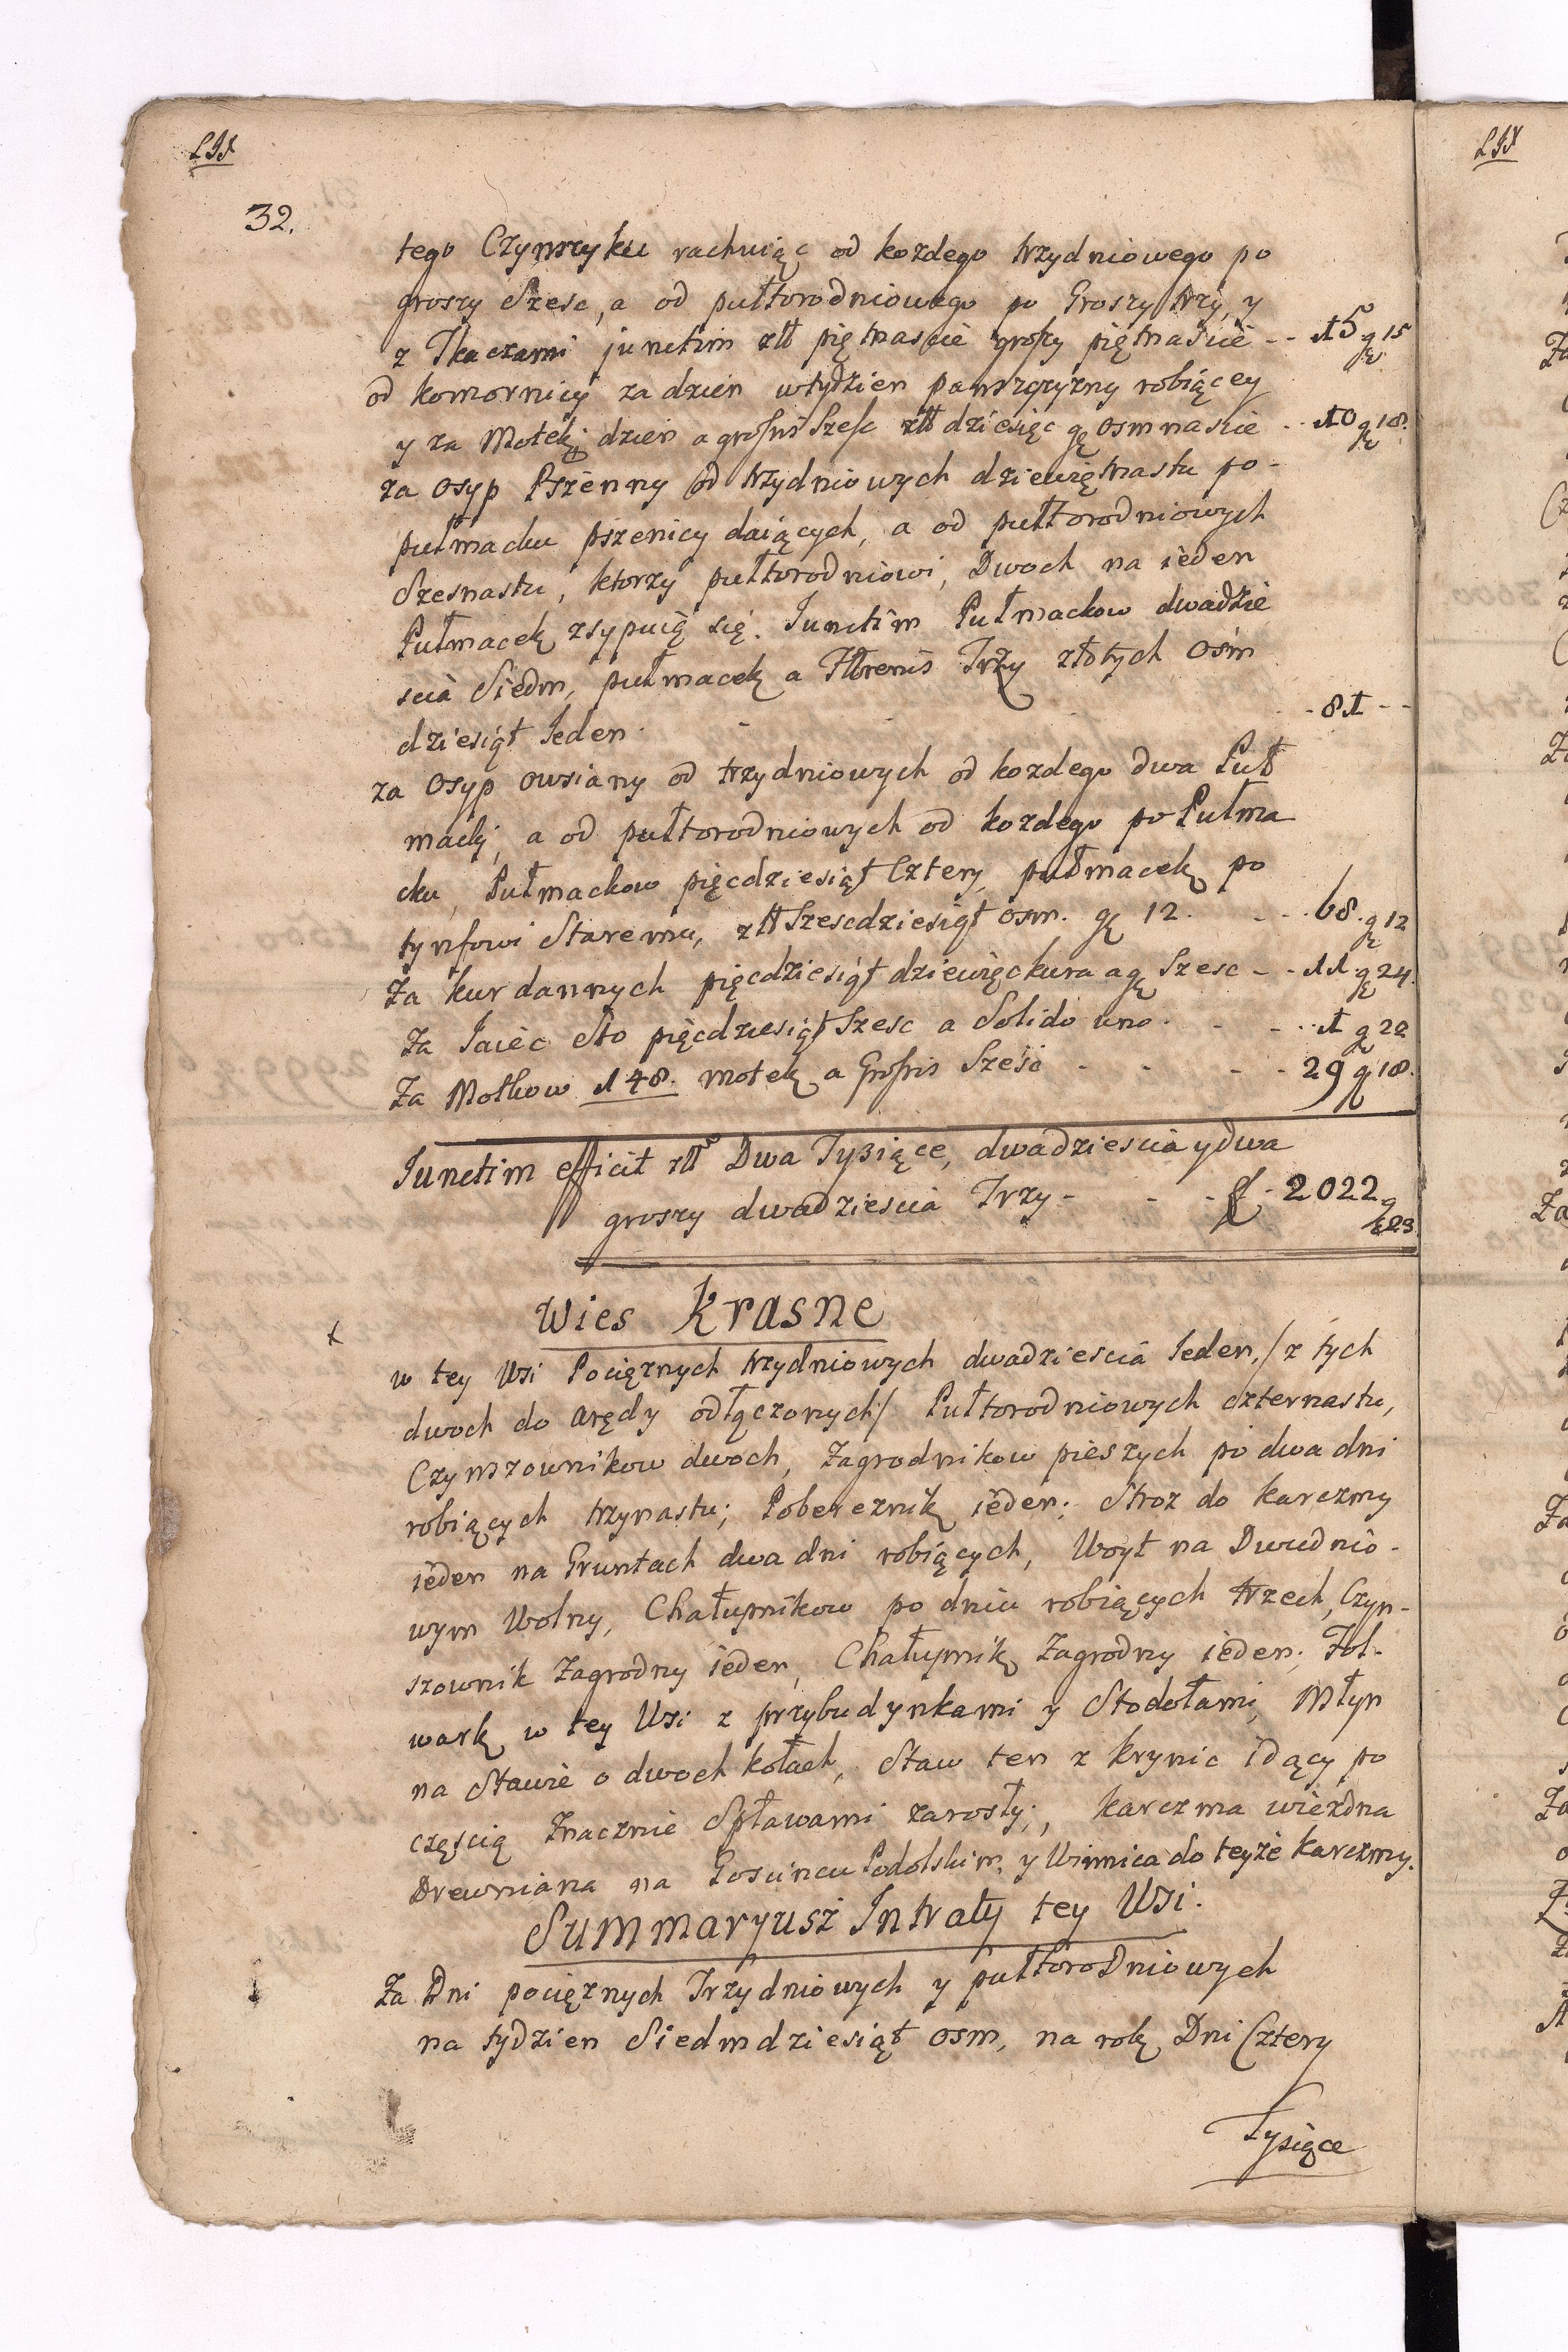 LIX
32.
tego Czynszyku rachuiąc od kozdego trzydniowego po
groszy Szesc, a od pułtorodniowego po Groszy trzy, y
z Tkaczami junctim złł piętnascie groszy piętnascie - - 15 gr 15
od komornicy za dzien wtydzien panszczyzny robiącey
y za Motek dzien a grossis Szesc złł dziesięc gr osmnascie - - 10 gr 18.
za osyp Pszenny od trzydniowych dziewiętnastu po-
pułmacku pszenicy daiących, a od pułtorodniowych
Szesnastu, ktorzy pułtorodniowi, Dwoch na ieden
Pułmacek zsypuią się. Junctim Pułmackow dwadzie
scia Siedm, pułmacek a Florenis Trzy złotych osm
dziesiąt Jeden - - 81 - -
za osyp owsiany od trzydniowych od kozdego dwa Puł
macki, a od pułtorodniowych od kozdego po Pułma
cku, Pułmackow pięcdziesiąt Cztery, pułmacek po
tynfowi Staremu, złł Szescdziesiąt osm. gr 12. - - - 68. gr 12
Za kur dannych pięcdziesiąt dziewięc kura a gr Szesc - - 11 gr 24.
Za Jaiec Sto pięcdziesiąt Szesc a Solido uno. - - - 1 gr 22
Za Motkow 148. motek a Grossis Szesc - - - - 29 gr 18.
Junctim efficit złł Dwa Tysiące, dwadziescia y dwa
groszy dwadziescia Trzy - - - - f - 2022 gr 23.
Wies Krasne
x
w tey Wsi Pocięznych trzydniowych dwadziescia Jeden, / z tych
dwoch do arędy odłączonych / Pułtorodniowych czternastu,
Czynszownikow dwoch, Zagrodnikow pieszych po dwa dni
robiących trzynastu; Pobereznik ieden; Stroz do karczmy
ieden na Gruntach dwa dni robiących, Woyt na Dwudnio-
wym Wolny, Chałupnikow po dniu robiących trzech, Czyn-
szownik Zagrodny ieden, Chałupnik Zagrodny ieden; Fol-
wark w tey Wsi z przybudynkami y Stodołami, Młyn
na Stawie o dwoch kołach, Staw ten z krynic idący po
częscią znacznie Spławami zarosły;, karczma wiezdna
Drewniana na Goscincu Podolskim, y Winnica do teyże karczmy.
Summaryusz Intraty tey Wsi.
Za Dni pocięznych Trzydniowych y pułtorodniowych
na tydzien Siedmdziesiąt osm, na rok Dni Cztery
Tysiące
LIX